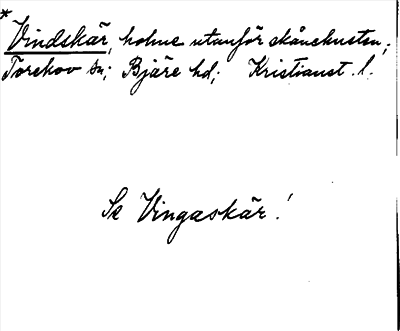 * Vindskär, holme utanför skånekusten;
Torekov sn; Bjäre hd; Kristianst. l.
Se Vingaskär!